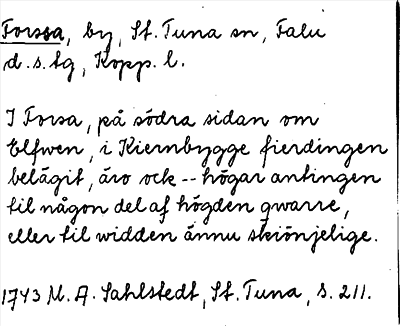 Forssa, by, St. Tuna sn, Falu
d.s. tg, Kopp. l.
I Forsa, på södra sidan om
Elfwen, i Kiernbygge fierdingen
belägit, äro ock -- högar antingen
til någon del af högden qwarre,
eller til widden ännu skiönjelige.
1743 M. A. Sahlstedt, St. Tuna, s. 211.